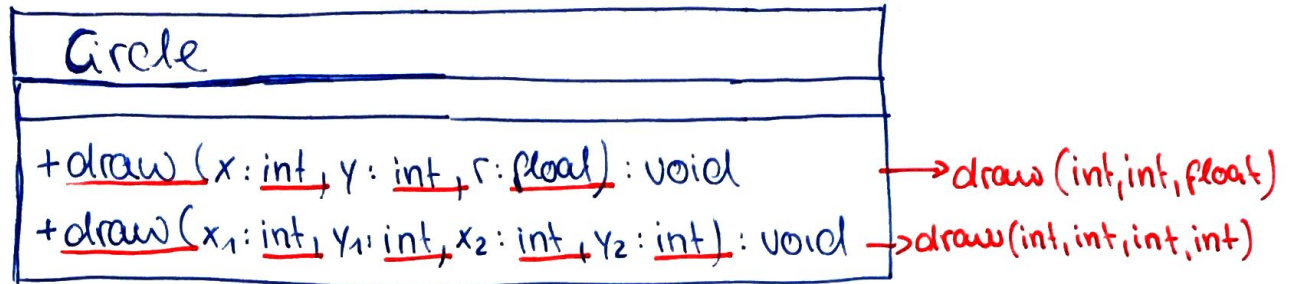 Circle
+draw(x: int, y: int, r: float): void
→draw(int, int, float)
+draw(x₁: int, y₁: int, x₂: int, y₂: int): void
→draw(int, int, int, int)